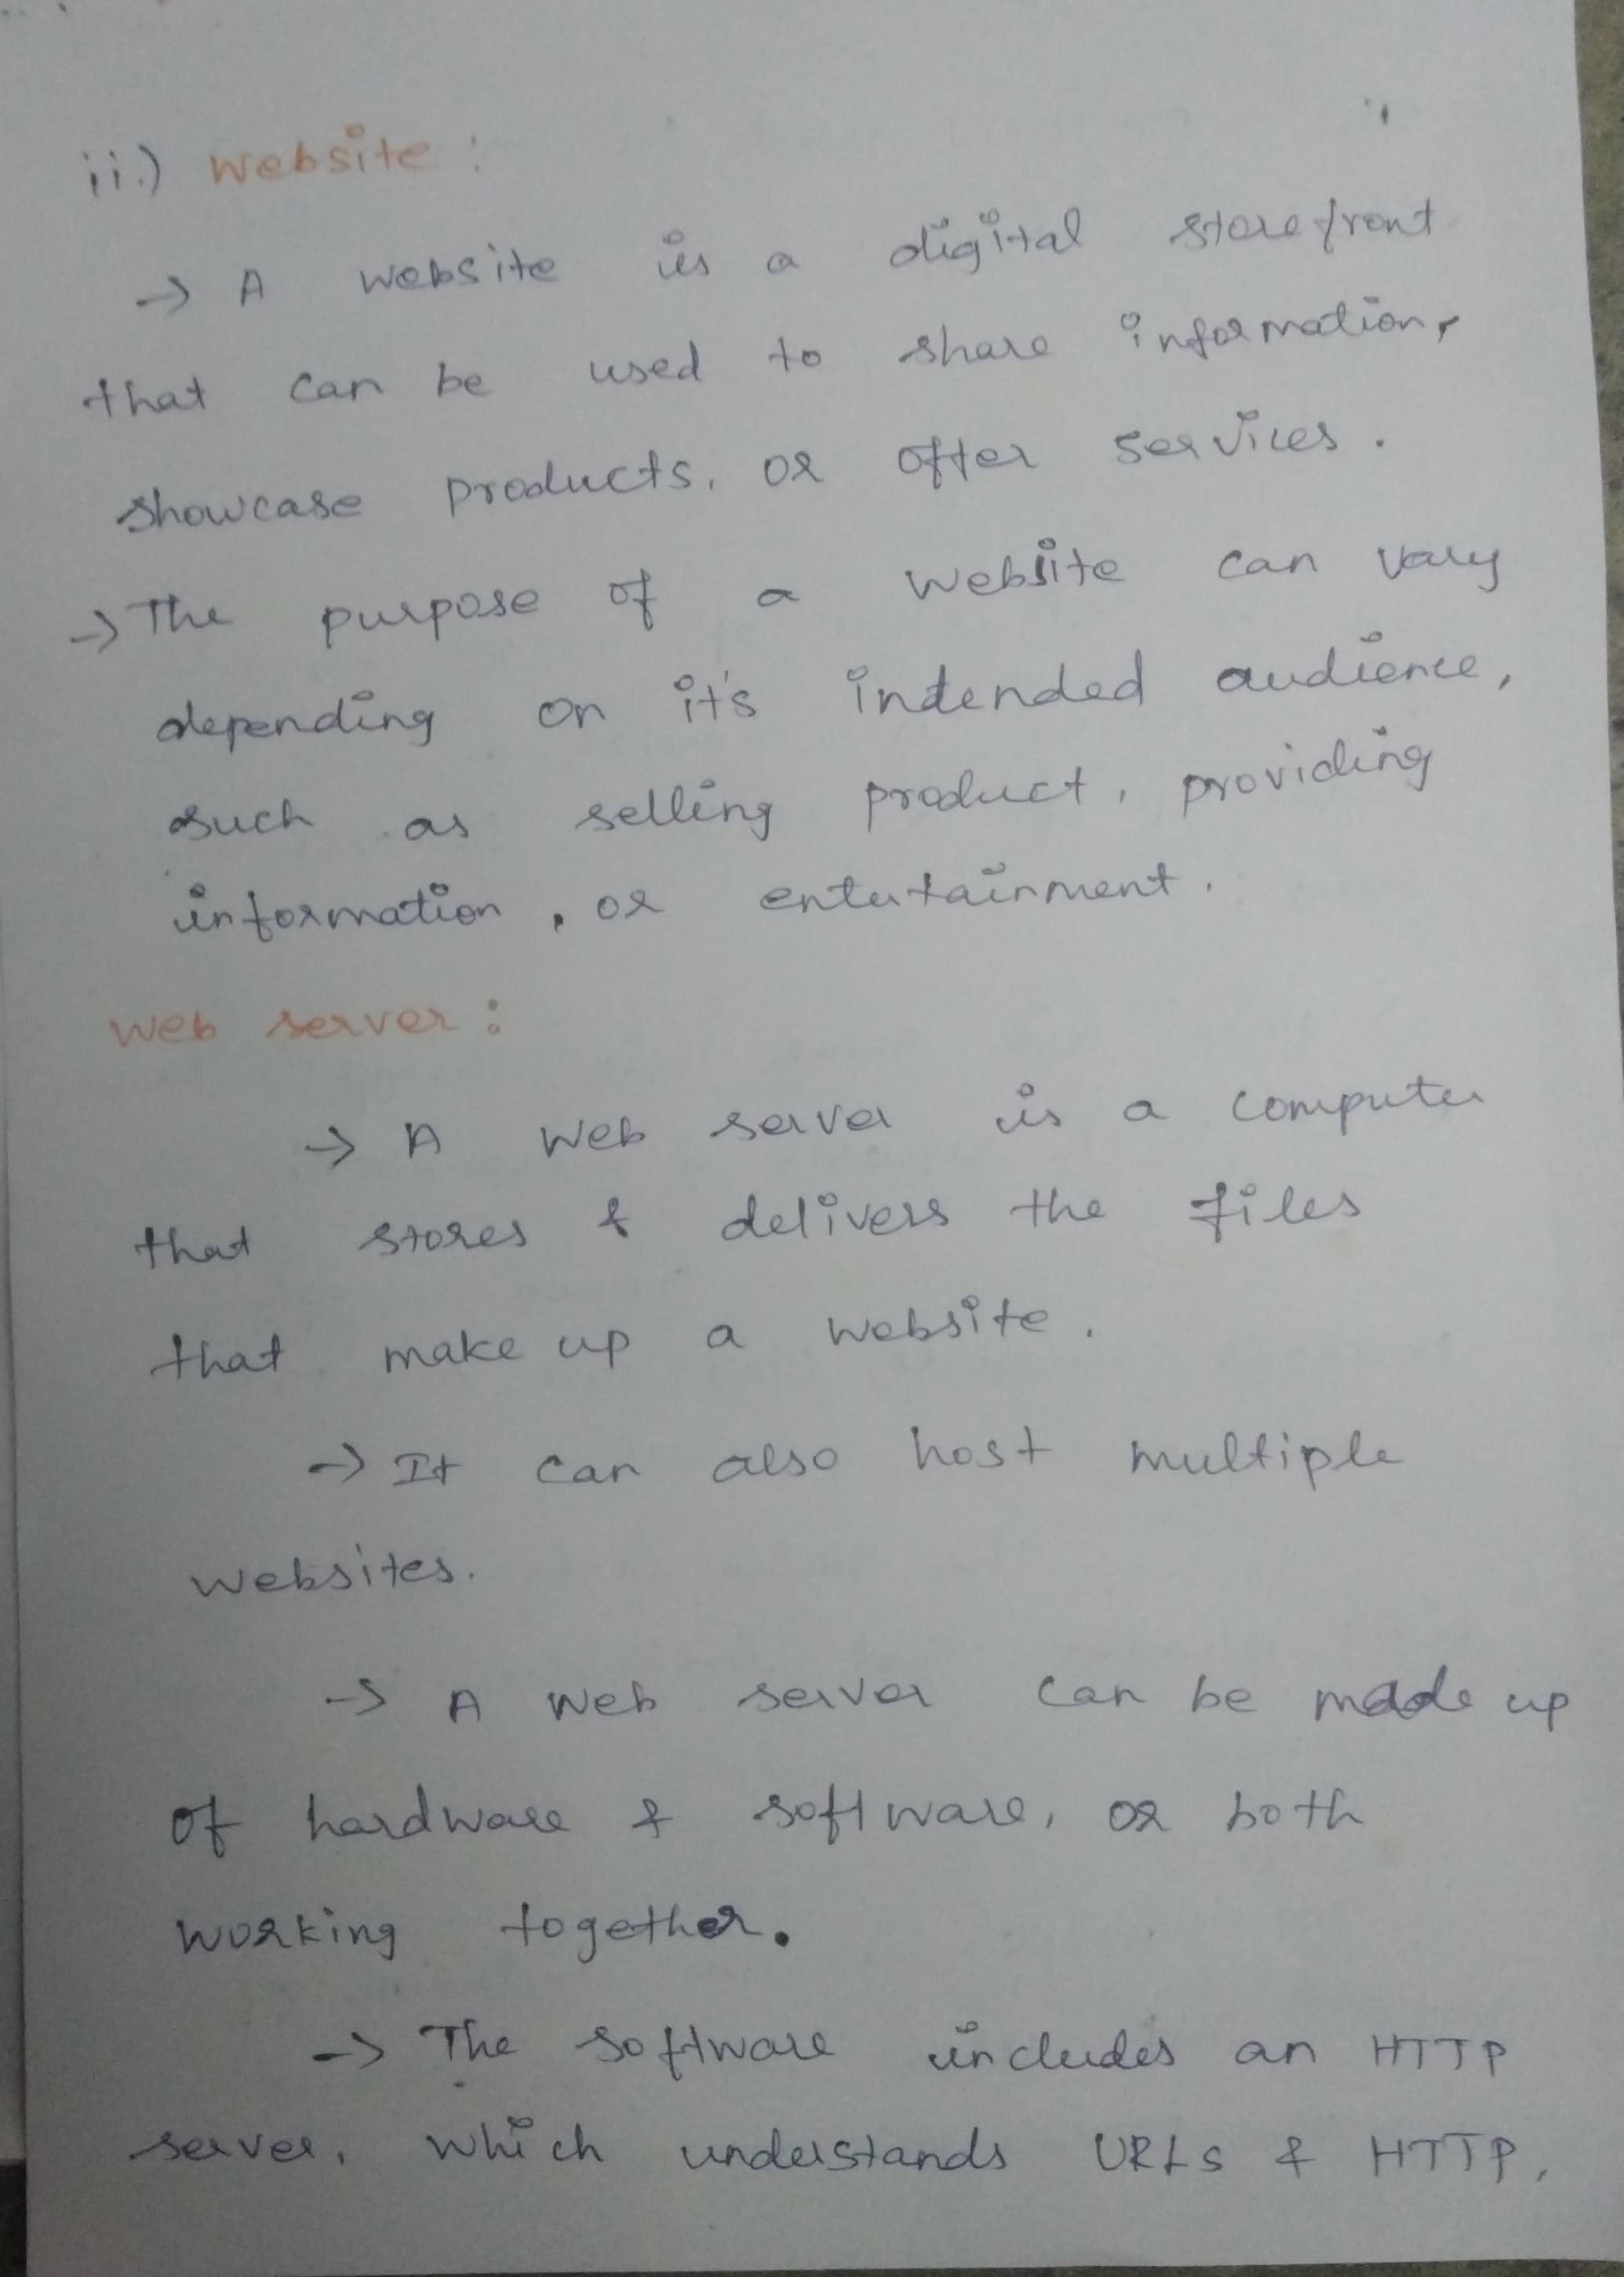 ii.) Website :
→ A website is a digital storefront
that can be used to share information,
showcase products, or offer services.
→ The purpose of a website can vary
depending on it's intended audience,
such as selling product, providing
information, or entertainment.
Web server :
→ A web server is a computer
that stores & delivers the files
that make up a website.
→ It can also host multiple
websites.
→ A web server can be made up
of hardware & software, or both
working together.
→ The software includes an HTTP
server, which understands URLs & HTTP,